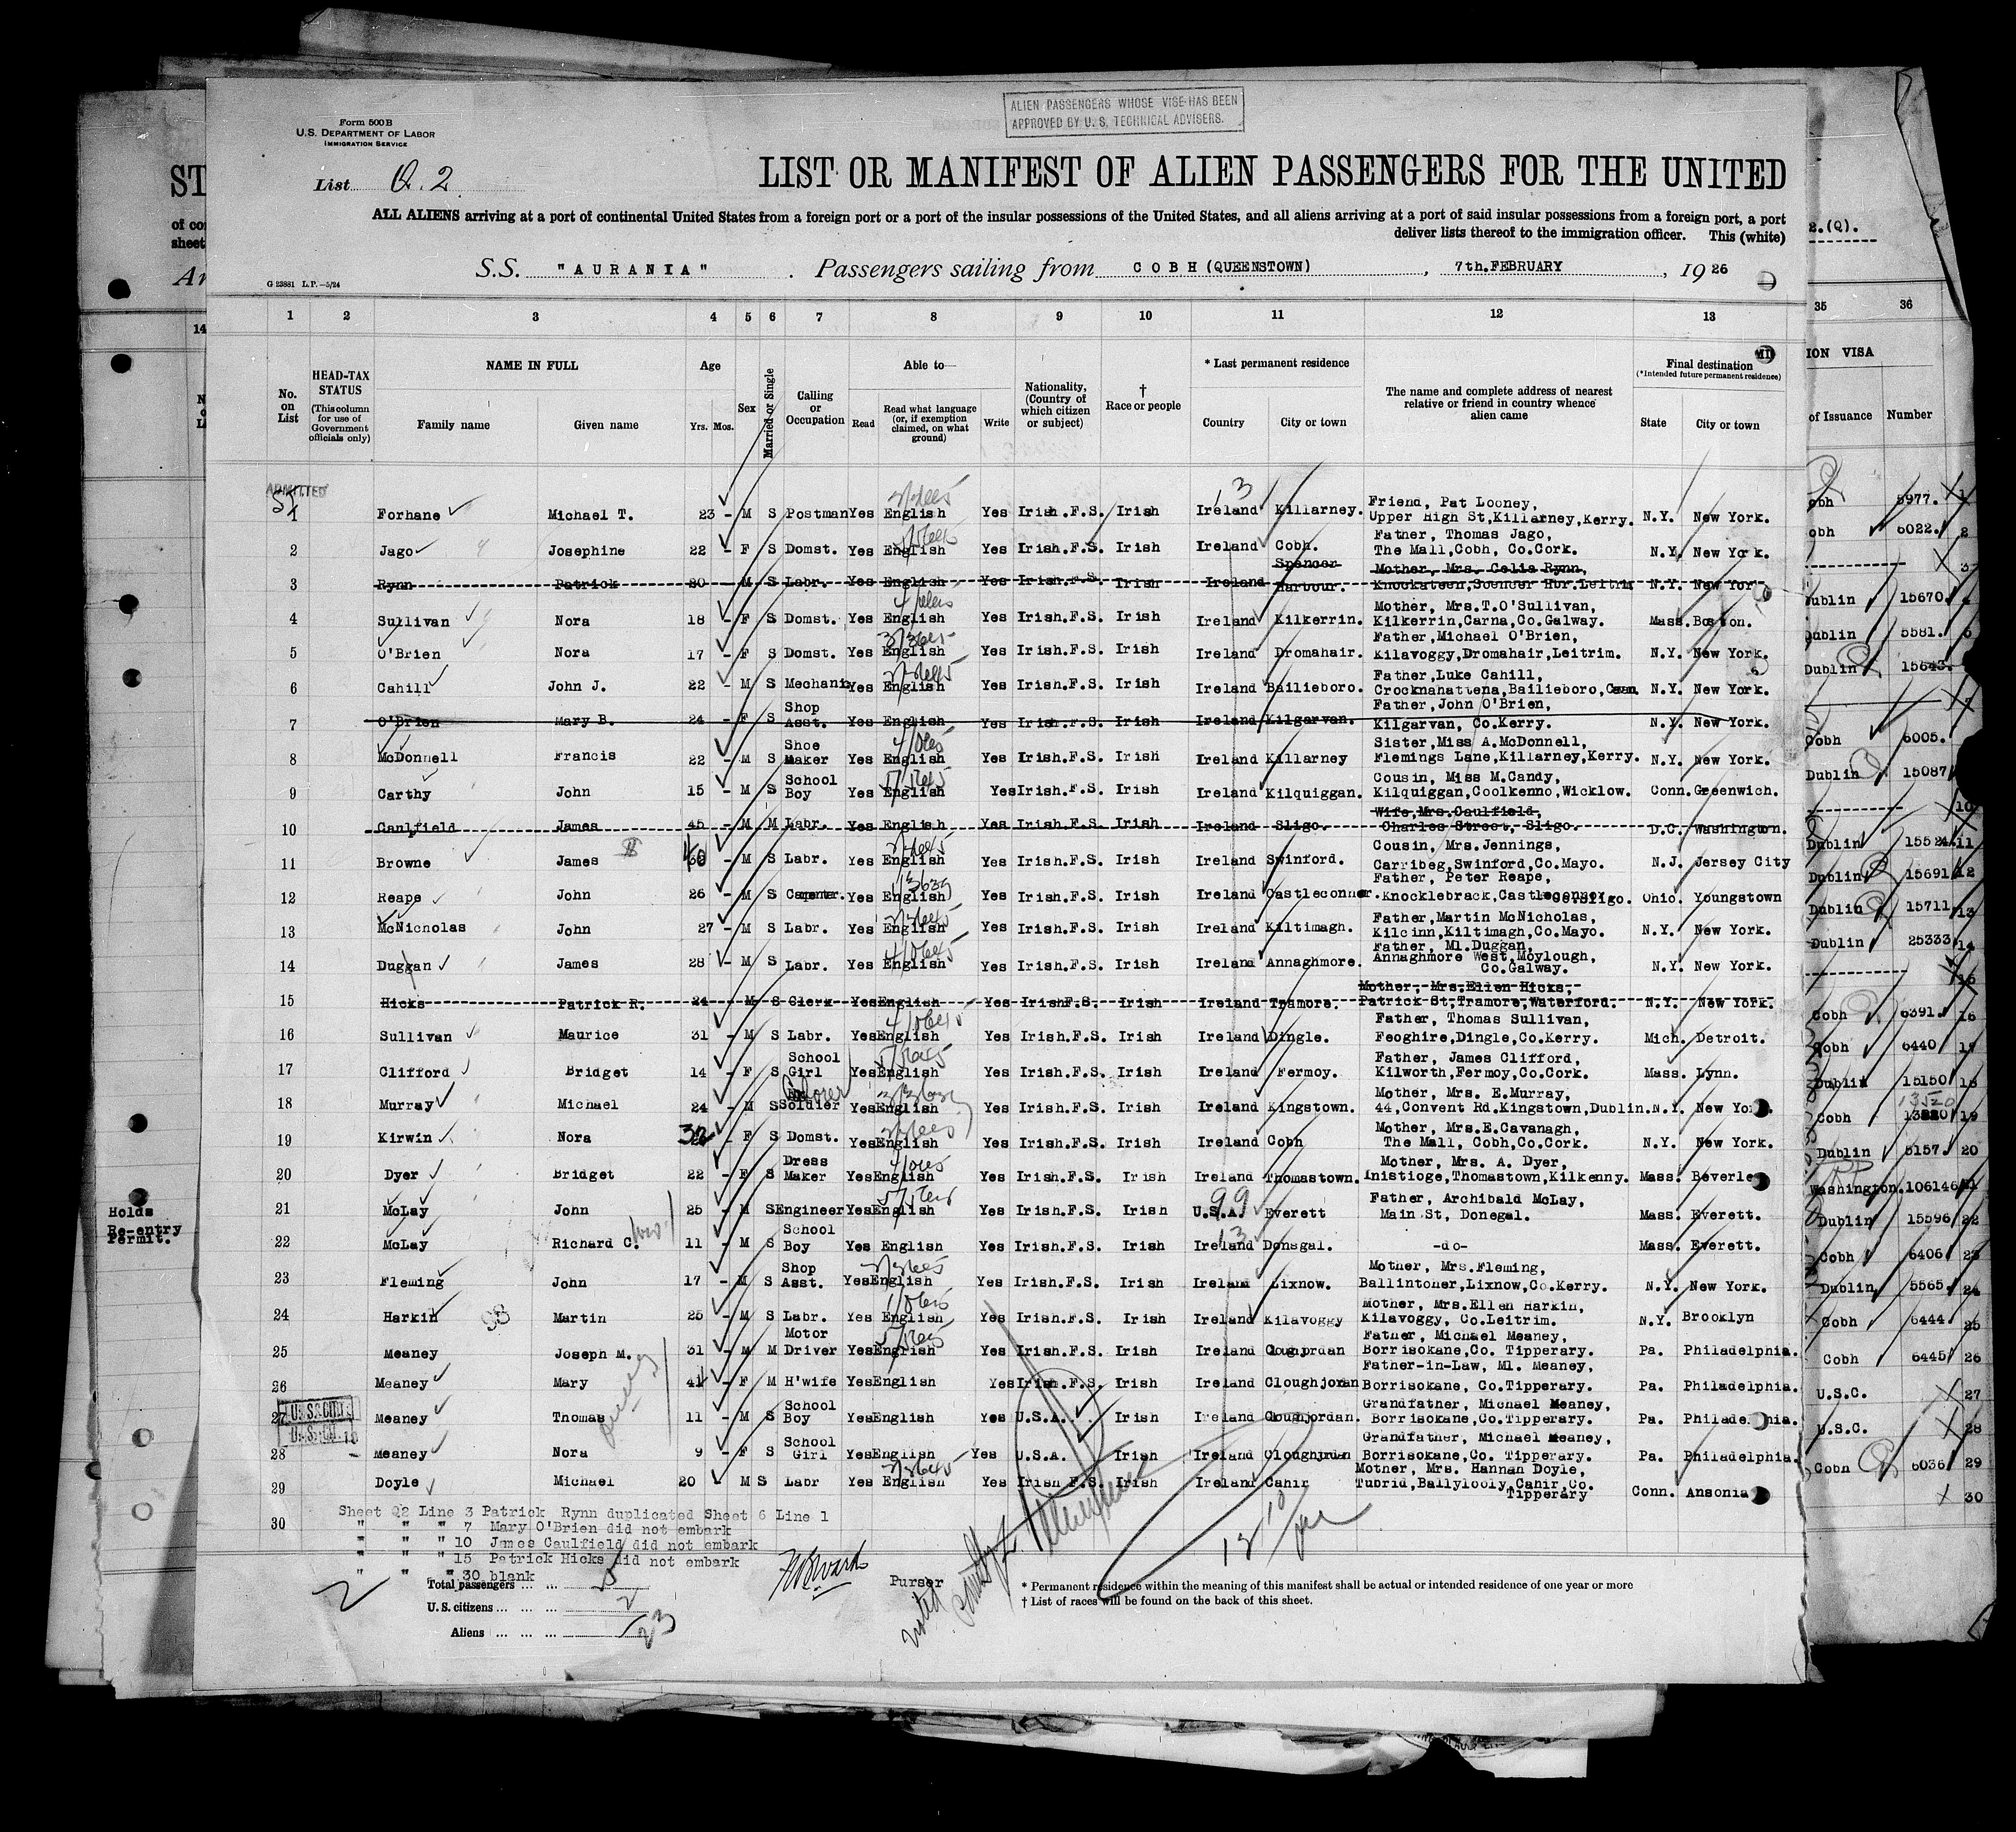 ALIEN PASSENGERS WHOSE VISE HAS BEEN
APPROVED BY U. S. TECHNICAL ADVISERS.
Form 500 B
U.S. DEPARTMENT OF LABOR
IMMIGRATION SERVICE
List Q. 2
LIST OR MANIFEST OF ALIEN PASSENGERS FOR THE UNITED
ALL ALIENS arriving at a port of continental United States from a foreign port or a port of the insular possessions of the United States, and all aliens arriving at a port of said insular possessions from a foreign port, a port
deliver lists thereof to the immigration officer. This (white)
S.S. "AURANIA" . Passengers sailing from COBH (QUEENSTOWN) , 7th.FEBRUARY , 19 26
G 23881 L.P.—5/24
1 2 3 4 5 6 7 8 9 10 11 12 13
35 36
No. on List
HEAD-TAX STATUS
(This column for use of Government officials only)
NAME IN FULL
Family name Given name
Age
Yrs. Mos.
Sex
Married or Single
Calling or Occupation
Able to—
Read
Read what language (or, if exemption claimed, on what ground)
Write
Nationality, (Country of which citizen or subject)
† Race or people
* Last permanent residence
Country City or town
The name and complete address of nearest relative or friend in country whence alien came
Final destination
(*Intended future permanent residence)
State City or town
ION VISA
of Issuance Number
ADMITTED
1 Forhane Michael T. 23 - M S Postman Yes English Yes Irish.F.S. Irish Ireland Killarney. Friend, Pat Looney, Upper High St,Killarney,Kerry. N.Y. New York.
2 Jago Josephine 22 - F S Domst. Yes English Yes Irish.F.S. Irish Ireland Cobh. Father, Thomas Jago, The Mall,Cobh, Co.Cork. N.Y. New York.
3 Rynn Patrick 30 M S Labr. Yes English Yes Irish.F.S. Irish Ireland Spencer Harbour. Mother, Mrs. Celia Rynn, Knockateen,Spencer Hbr.Leitrim N.Y. New York
4 Sullivan Nora 18 - F S Domst. Yes English Yes Irish.F.S. Irish Ireland Kilkerrin. Mother, Mrs.T.O'Sullivan, Kilkerrin,Carna,Co.Galway. Mass. Boston.
5 O'Brien Nora 17 - F S Domst. Yes English Yes Irish.F.S. Irish Ireland Dromahair. Father,Michael O'Brien, Kilavoggy,Dromahair,Leitrim. N.Y. New York.
6 Cahill John J. 22 - M S Mechanic Yes English Yes Irish.F.S. Irish Ireland Bailieboro. Father,Luke Cahill, Crocknahattena,Bailieboro,Cavan N.Y. New York.
7 O'Brien Mary B. 24 - F S Shop Asst. Yes English Yes Irish.F.S. Irish Ireland Kilgarvan. Father, John O'Brien, Kilgarvan, Co.Kerry. N.Y. New York.
8 McDonnell Francis 22 - M S Shoe Maker Yes English Yes Irish.F.S. Irish Ireland Killarney Sister,Miss A.McDonnell, Flemings Lane,Killarney,Kerry. N.Y. New York.
9 Carthy John 15 - M S School Boy Yes English Yes Irish.F.S. Irish Ireland Kilquiggan. Cousin, Miss M.Candy, Kilquiggan,Coolkenno,Wicklow. Conn. Greenwich.
10 Caulfield James 45 - M M Labr. Yes English Yes Irish.F.S. Irish Ireland Sligo. Wife,Mrs.Caulfield, Charles Street, Sligo. D.C. Washington.
11 Browne James - M S Labr. Yes English Yes Irish.F.S. Irish Ireland Swinford. Cousin, Mrs.Jennings, Carribeg,Swinford,Co.Mayo. N.J. Jersey City
12 Reape John 26 - M S Carpenter. Yes English Yes Irish.F.S. Irish Ireland Castleconnor. Father, Peter Reape, Knocklebrack,Castleconnor Co.Sligo. Ohio. Youngstown
13 McNicholas John 27 - M S Labr. Yes English Yes Irish.F.S. Irish Ireland Kiltimagh. Father,Martin McNicholas, Kilcinn,Kiltimagh,Co.Mayo. N.Y. New York.
14 Duggan James 28 - M S Labr. Yes English Yes Irish.F.S. Irish Ireland Annaghmore. Father, Ml.Duggan, Annaghmore West,Moylough, Co.Galway. N.Y. New York.
15 Hicks Patrick R. 24 M S Clerk Yes English Yes Irish F.S. Irish Ireland Tramore. Mother, Mrs.Ellen Hicks, Patrick St,Tramore,Waterford. N.Y. New York.
16 Sullivan Maurice 31 - M S Labr. Yes English Yes Irish.F.S. Irish Ireland Dingle. Father, Thomas Sullivan, Feoghire,Dingle,Co.Kerry. Mich. Detroit.
17 Clifford Bridget 14 - F S School Girl Yes English Yes Irish.F.S. Irish Ireland Fermoy. Father, James Clifford, Kilworth,Fermoy,Co.Cork. Mass. Lynn.
18 Murray Michael 24 - M S Soldier Yes English Yes Irish.F.S. Irish Ireland Kingstown. Mother, Mrs. E.Murray, 44,Convent Rd.Kingstown,Dublin. N.Y. New Yo
19 Kirwin Nora 32 - F S Domst. Yes English Yes Irish.F.S. Irish Ireland Cobh Mother, Mrs.E.Cavanagh, The Mall, Cobh,Co.Cork. N.Y. New York.
20 Dyer Bridget 22 - F S Dress Maker Yes English Yes Irish.F.S. Irish Ireland Thomastown. Mother, Mrs. A. Dyer, Inistioge,Thomastown,Kilkenny. Mass. Beverle
21 McLay John 25 - M S Engineer Yes English Yes Irish.F.S. Irish U.S.A. 99 Everett Father, Archibald McLay, Main St, Donegal. Mass. Everett.
22 McLay Richard C. 11 - M S School Boy Yes English Yes Irish.F.S. Irish Ireland Donegal. -do- Mass. Everett.
23 Fleming John 17 - M S Shop Asst. Yes English Yes Irish.F.S. Irish Ireland Lixnow. Mother, Mrs.Fleming, Ballintoher,Lixnow,Co.Kerry. N.Y. New York.
24 Harkin 98 Martin 25 - M S Labr. Yes English Yes Irish.F.S. Irish Ireland Kilavoggy Mother, Mrs.Ellen Harkin, Kilavoggy, Co.Leitrim. N.Y. Brooklyn
25 Meaney Joseph M. 31 - M M Motor Driver Yes English Yes Irish.F.S. Irish Ireland Cloughjordan Father, Michael Meaney, Borrisokane,Co. Tipperary. Pa. Philadelphia.
26 Meaney Mary 41 - F M H'wife Yes English Yes Irish.F.S. Irish Ireland Cloughjordan Father-in-Law, Ml. Meaney, Borrisokane, Co.Tipperary. Pa. Philadelphia.
27 Meaney Thomas 11 - M S School Boy Yes English Yes U.S.A. Irish Ireland Cloughjordan. Grandfather, Michael Meaney, Borrisokane,Co.Tipperary. Pa. Philade nia.
28 Meaney Nora 9 - F S School Girl Yes English Yes U.S.A. Irish Ireland Cloughjordan Grandfather, Michael Meaney, Borrisokane,Co. Tipperary. Pa. Philadelphia.
29 Doyle Michael 20 M S Labr Yes English Yes Irish F.S. Irish Ireland Cahir Mother, Mrs. Hannah Doyle, Tubrid,Ballylooly,Cahir,Co. Tipperary Conn. Ansonia
30
Sheet Q2 Line 3 Patrick Rynn duplicated Sheet 6 Line 1
" " " 7 Mary O'Brien did not embark
" " " 10 James Caulfield did not embark
" " " 15 Patrick Hicks did not embark
" " " 30 blank
Total passengers
U. S. citizens 2
Aliens 23
Purser
* Permanent residence within the meaning of this manifest shall be actual or intended residence of one year or more
† List of races will be found on the back of this sheet.
Holds
Re-entry
Permit.
ST
of co
sheet
Ar
14
2.(Q).
obh 5977. 1
obh 6022. 2
3
Dublin 15670. 4
Dublin 5581. 5
Dublin 15643.
7
Cobh 6005.
Dublin 15087
10
Dublin 15524. 11
Dublin 15691 12
Dublin 15711 13
Dublin 25333 14
15
Cobh 6391 16
Cobh 6440 17
Dublin 15150 18
Cobh 13520 19
Dublin 5157. 20
Washington. 106146 21
Dublin 15596 22
Cobh 6406 23
Dublin 5565. 24
Cobh 6444 25
Cobh 6445 26
U.S.C. 27
U.S.C. 28
Cobh 6036 29
30